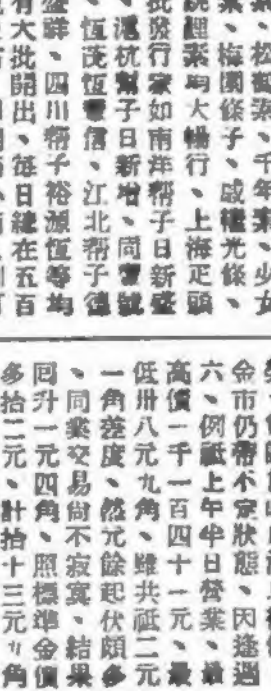 素、梅園條子、咸權光條、
統經素均大暢行、上海疋頭
批發行家如南洋幇子日新盛
、滬杭幫子日新增、同豐號
、恆茂恆豐信、江北幇子德
盛群、四川幇子裕源恆等均
有大批開出、每日總在五百
金市仍帶不定狀態、因逢過
六、例祗上年半日營業、最
高價一千一百四十一元、最
低卅八元九角、雖共祗二元
一角差度、然元餘起伏頗多
、同業交易尙不寂寞、結果
回升一元四角、照標準金價
多拾二元、計拾十三元九角